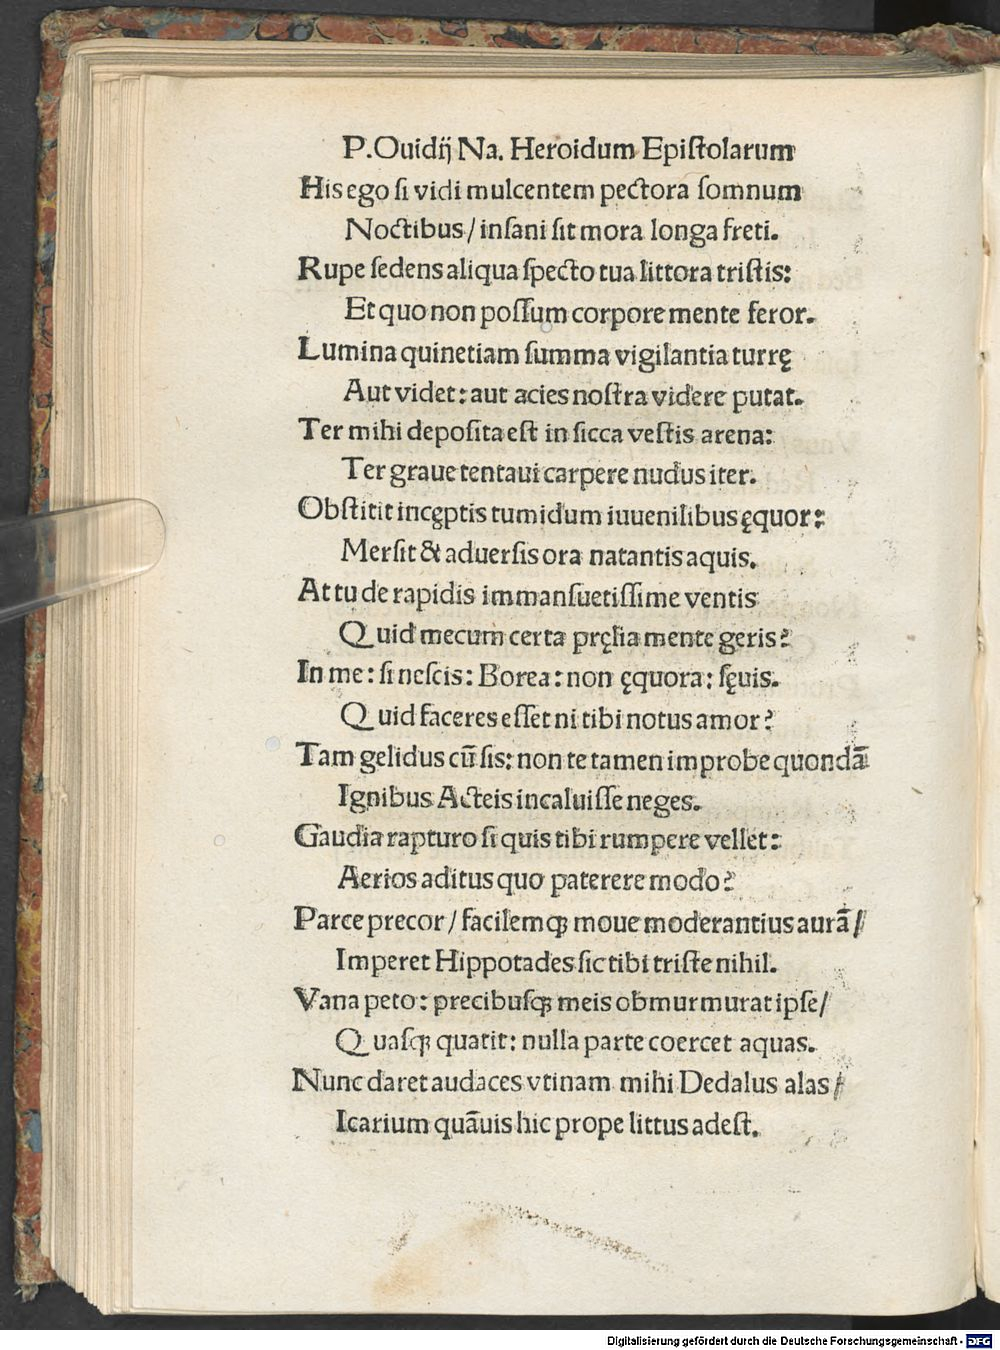 P.Ouidij Na. Heroidum Epiſtolarum
His ego ſi vidi mulcentem pectora ſomnum
Noctibus/ inſani ſit mora longa freti.
Rupe ſedens aliqua ſpecto tua littora triſtis:
Et quo non poſſum corpore mente feror.
Lumina quinetiam ſumma vigilantia turrę
Aut videt: aut acies noſtra videre putat.
Ter mihi depoſita eſt in ſicca veſtis arena:
Ter graue tentaui carpere nudus iter.
Obſtitit incęptis tumidum iuuenilibus ęquor:
Merſit & aduerſis ora natantis aquis.
At tu de rapidis immanſuetiſſime ventis
Quid mecum certa pręlia mente geris?
In me: ſi neſcis: Borea: non ęquora: ſęuis.
Quid faceres eſſet ni tibi notus amor?
Tam gelidus cū ſis: non te tamen improbe quondā
Ignibus Acteis incaluiſſe neges.
Gaudia rapturo ſi quis tibi rumpere vellet:
Aerios aditus quo paterere modo?
Parce precor/ facilemqꝫ moue moderantius aurā/
Imperet Hippotades ſic tibi triſte nihil.
Vana peto: precibuſqꝫ meis obmurmurat ipſe/
Quaſqꝫ quatit: nulla parte coercet aquas.
Nunc daret audaces vtinam mihi Dedalus alas/
Icarium quāuis hic prope littus adeſt.
Digitalisierung gefördert durch die Deutsche Forschungsgemeinschaft - DFG